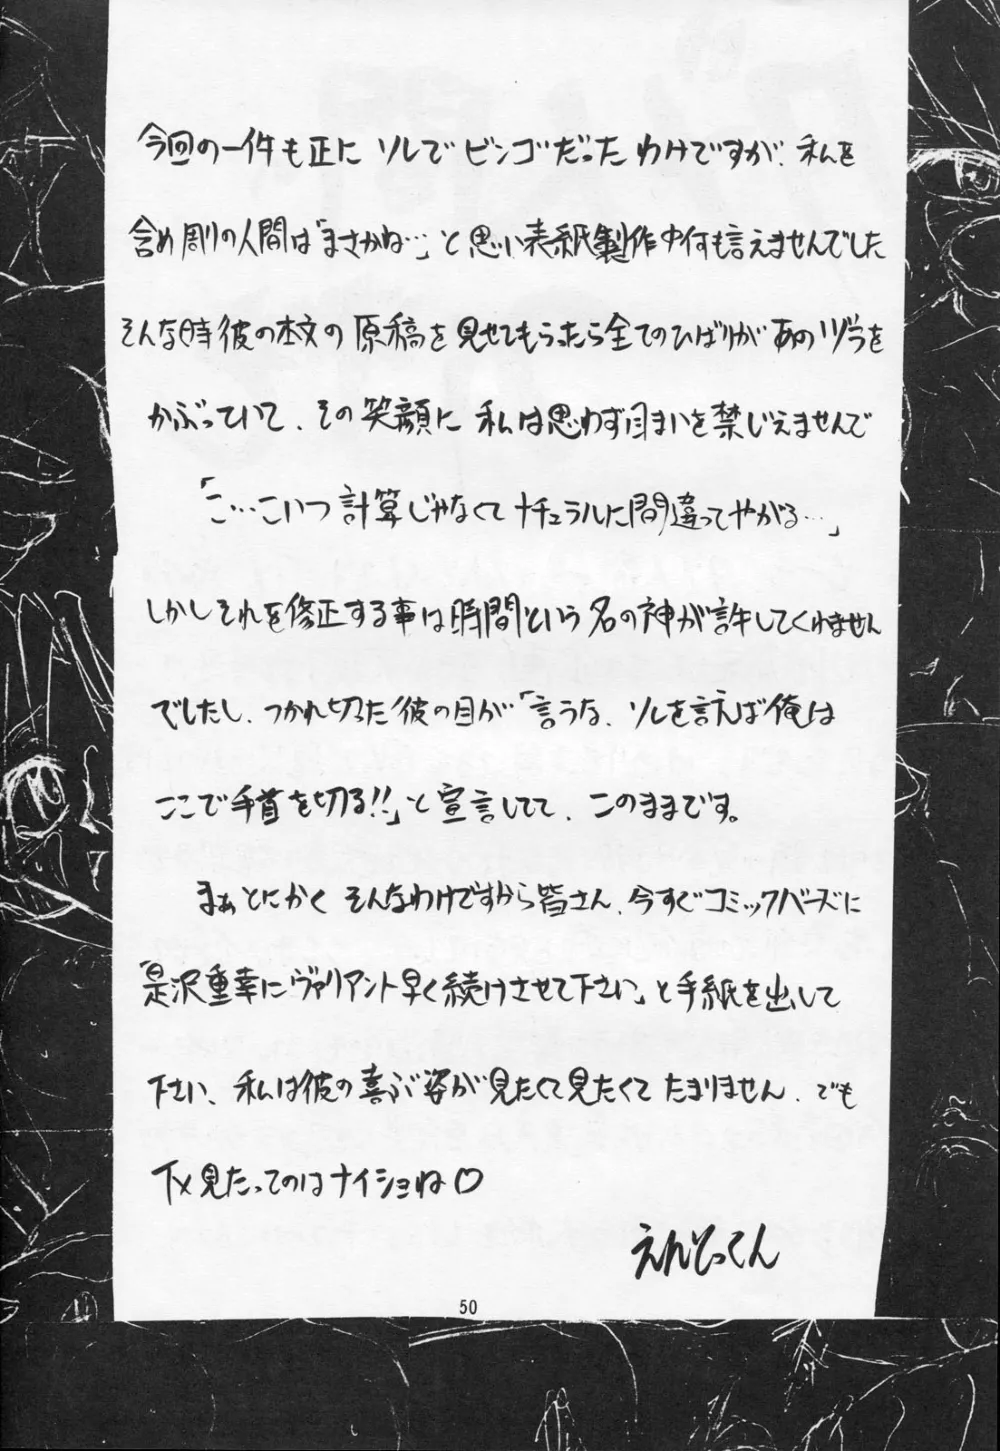 今回の一件も正に ソレで ビンゴだった わけですが、私を
含め周りの人間は「まさかね…」と思い表紙製作中何も言えませんでした
そんな時彼の本文の原稿を見せてもらったら全てのひばりがあのヅラを
かぶっていて、その笑顔に 私は思わず目まいを禁じえませんで
「こ…こいつ計算じゃなくてナチュラルに間違ってやがる…」
しかしそれを修正する事は時間という名の神が許してくれません
でしたし、つかれ切った彼の目が「言うな、ソレを言えば俺は
ここで手首を切る!!」と宣言してて、このままです。
まぁとにかく そんなわけですから皆さん、今すぐコミックバーズに
「是沢重幸にヴァリアント早く続けさせて下さい」と手紙を出して
下さい、私は彼の喜ぶ姿が見たくて見たくてたまりません、でも
下メ見たってのはナイショね♡
えんどってん
50